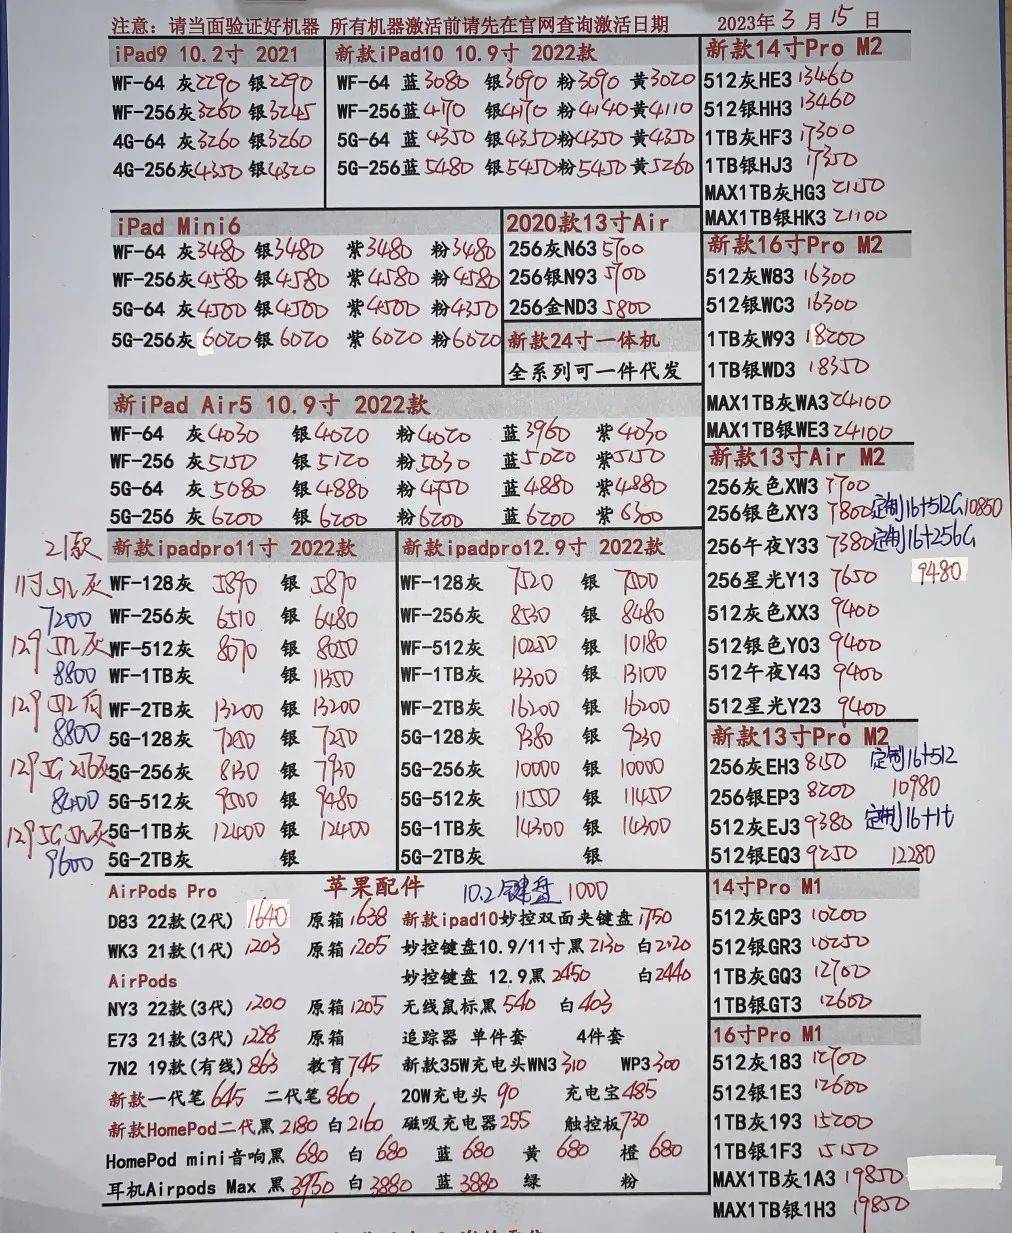 注意：请当面验证好机器 所有机器激活前请先在官网查询激活日期
2023年3月15日
iPad9 10.2寸 2021
WF-64 灰2290 银2290
WF-256灰3260 银3245
4G-64 灰3260 银3260
4G-256灰4350 银4320
新款iPad10 10.9寸 2022款
WF-64 蓝3080 银3090 粉3090 黄3020
WF-256蓝4170 银4170 粉4140 黄4110
5G-64 蓝4350 银4350 粉4350 黄4350
5G-256蓝5480 银5450 粉5450 黄5260
iPad Mini6
WF-64 灰3480 银3480 紫3480 粉3480
WF-256灰4580 银4580 紫4580 粉4580
5G-64 灰4500 银4500 紫4500 粉4350
5G-256灰6020 银6020 紫6020 粉6020
2020款13寸Air
256灰N63 5700
256银N93 5700
256金ND3 5800
新款24寸一体机
全系列可一件代发
新iPad Air5 10.9寸 2022款
WF-64 灰4030 银4020 粉4020 蓝3960 紫4030
WF-256 灰5150 银5120 粉5030 蓝5020 紫5150
5G-64 灰5080 银4880 粉4750 蓝4880 紫4880
5G-256 灰6200 银6200 粉6200 蓝6200 紫6300
21款
11寸512灰
7200
129 512灰
8800
129 512
8800
129 5G 256灰
8400
129 5G 512灰
9600
新款ipadpro11寸 2022款
WF-128灰 5890 银 5870
WF-256灰 6510 银 6480
WF-512灰 8070 银 8050
WF-1TB灰 银 11350
WF-2TB灰 13200 银 13200
5G-128灰 7250 银 7250
5G-256灰 8130 银 7930
5G-512灰 9500 银 9480
5G-1TB灰 12400 银 12400
5G-2TB灰 银
新款ipadpro12.9寸 2022款
WF-128灰 7520 银 7500
WF-256灰 8530 银 8480
WF-512灰 10250 银 10180
WF-1TB灰 13300 银 13100
WF-2TB灰 16200 银 16200
5G-128灰 9380 银 9230
5G-256灰 10000 银 10000
5G-512灰 11550 银 11450
5G-1TB灰 14300 银 14300
5G-2TB灰 银
AirPods Pro 苹果配件 10.2键盘 1000
D83 22款(2代) 1640 原箱1638 新款ipad10妙控双面夹键盘1750
WK3 21款(1代) 1203 原箱1205 妙控键盘10.9/11寸黑2130 白2120
AirPods 妙控键盘 12.9黑2450 白2440
NY3 22款(3代) 1200 原箱1205 无线鼠标黑540 白403
E73 21款(3代) 1228 原箱 追踪器 单件套 4件套
7N2 19款(有线)863 教育745 新款35W充电头WN3 310 WP3 300
新款一代笔645 二代笔860 20W充电头 90 充电宝485
新款HomePod二代黑2180 白2160 磁吸充电器255 触控板730
HomePod mini音响黑 680 白 680 蓝 680 黄 680 橙 680
耳机Airpods Max 黑3950 白3880 蓝3880 绿 粉
新款14寸Pro M2
512灰HE3 13460
512银HH3 13460
1TB灰HF3 17300
1TB银HJ3 17350
MAX1TB灰HG3 21150
MAX1TB银HK3 21100
新款16寸Pro M2
512灰W83 16300
512银WC3 16300
1TB灰W93 18200
1TB银WD3 18350
MAX1TB灰WA3 24100
MAX1TB银WE3 24100
新款13寸Air M2
256灰色XW3 7700
256银色XY3 7800 定制16+512G10850
256午夜Y33 7380 定制16+256G
256星光Y13 7650 9480
512灰色XX3 9400
512银色Y03 9400
512午夜Y43 9400
512星光Y23 9400
新款13寸Pro M2
256灰EH3 8150 定制16+512
256银EP3 8200 10980
512灰EJ3 9380 定制16+1t
512银EQ3 9250 12280
14寸Pro M1
512灰GP3 10200
512银GR3 10250
1TB灰GQ3 12700
1TB银GT3 12600
16寸Pro M1
512灰183 12700
512银1E3 12600
1TB灰193 15200
1TB银1F3 15150
MAX1TB灰1A3 19850
MAX1TB银1H3 19850